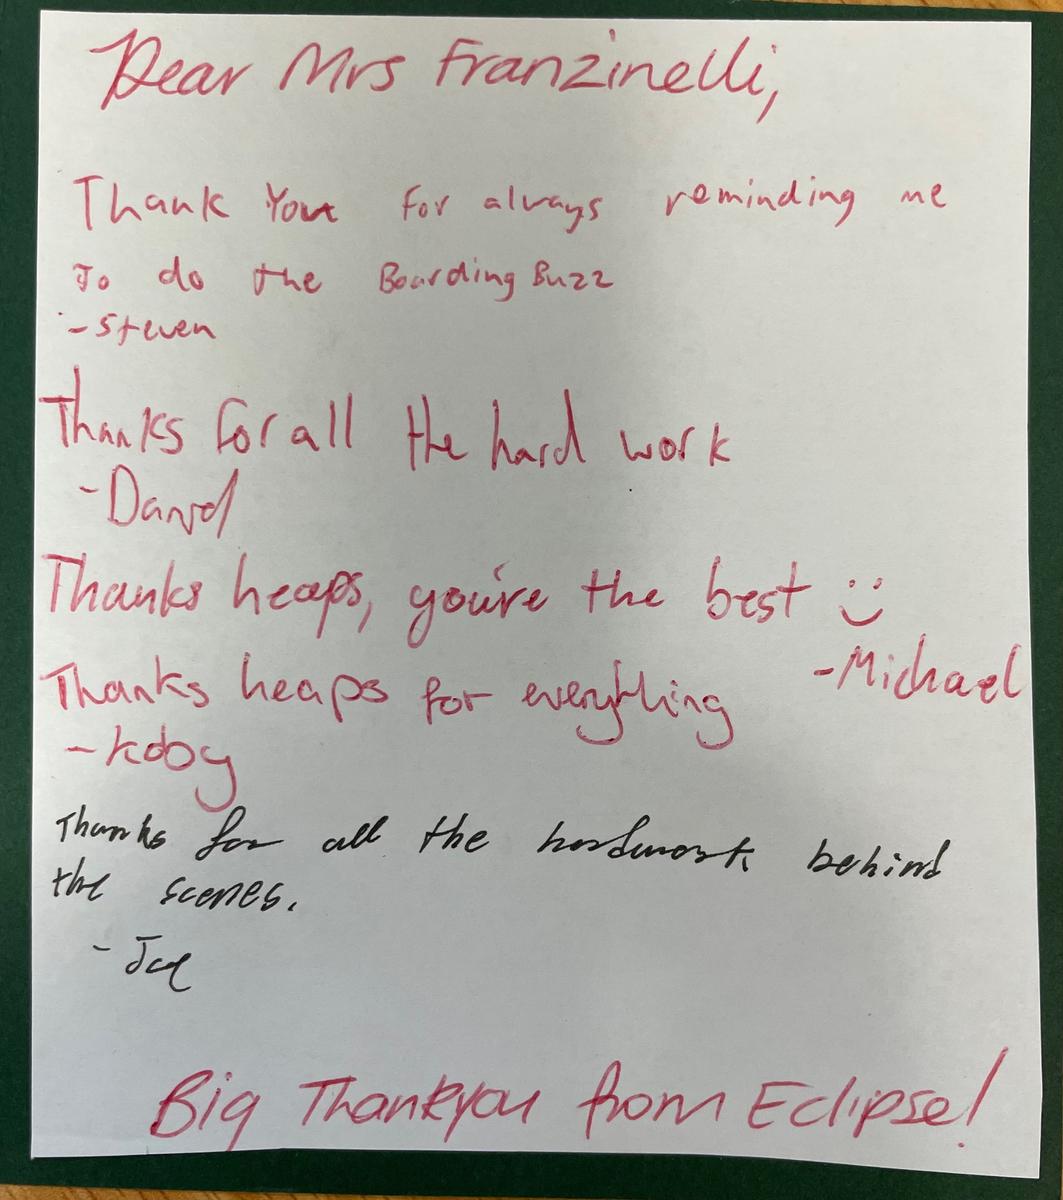 Dear Mrs Franzinelli,
Thank You for always reminding me
To do the Boarding Buzz
- Steven
Thanks for all the hard work
- David
Thanks heaps, you're the best :)
- Michael
Thanks heaps for everything
- Koby
Thanks for all the hardwork behind
the scenes.
- Joe
Big Thankyou from Eclipse!